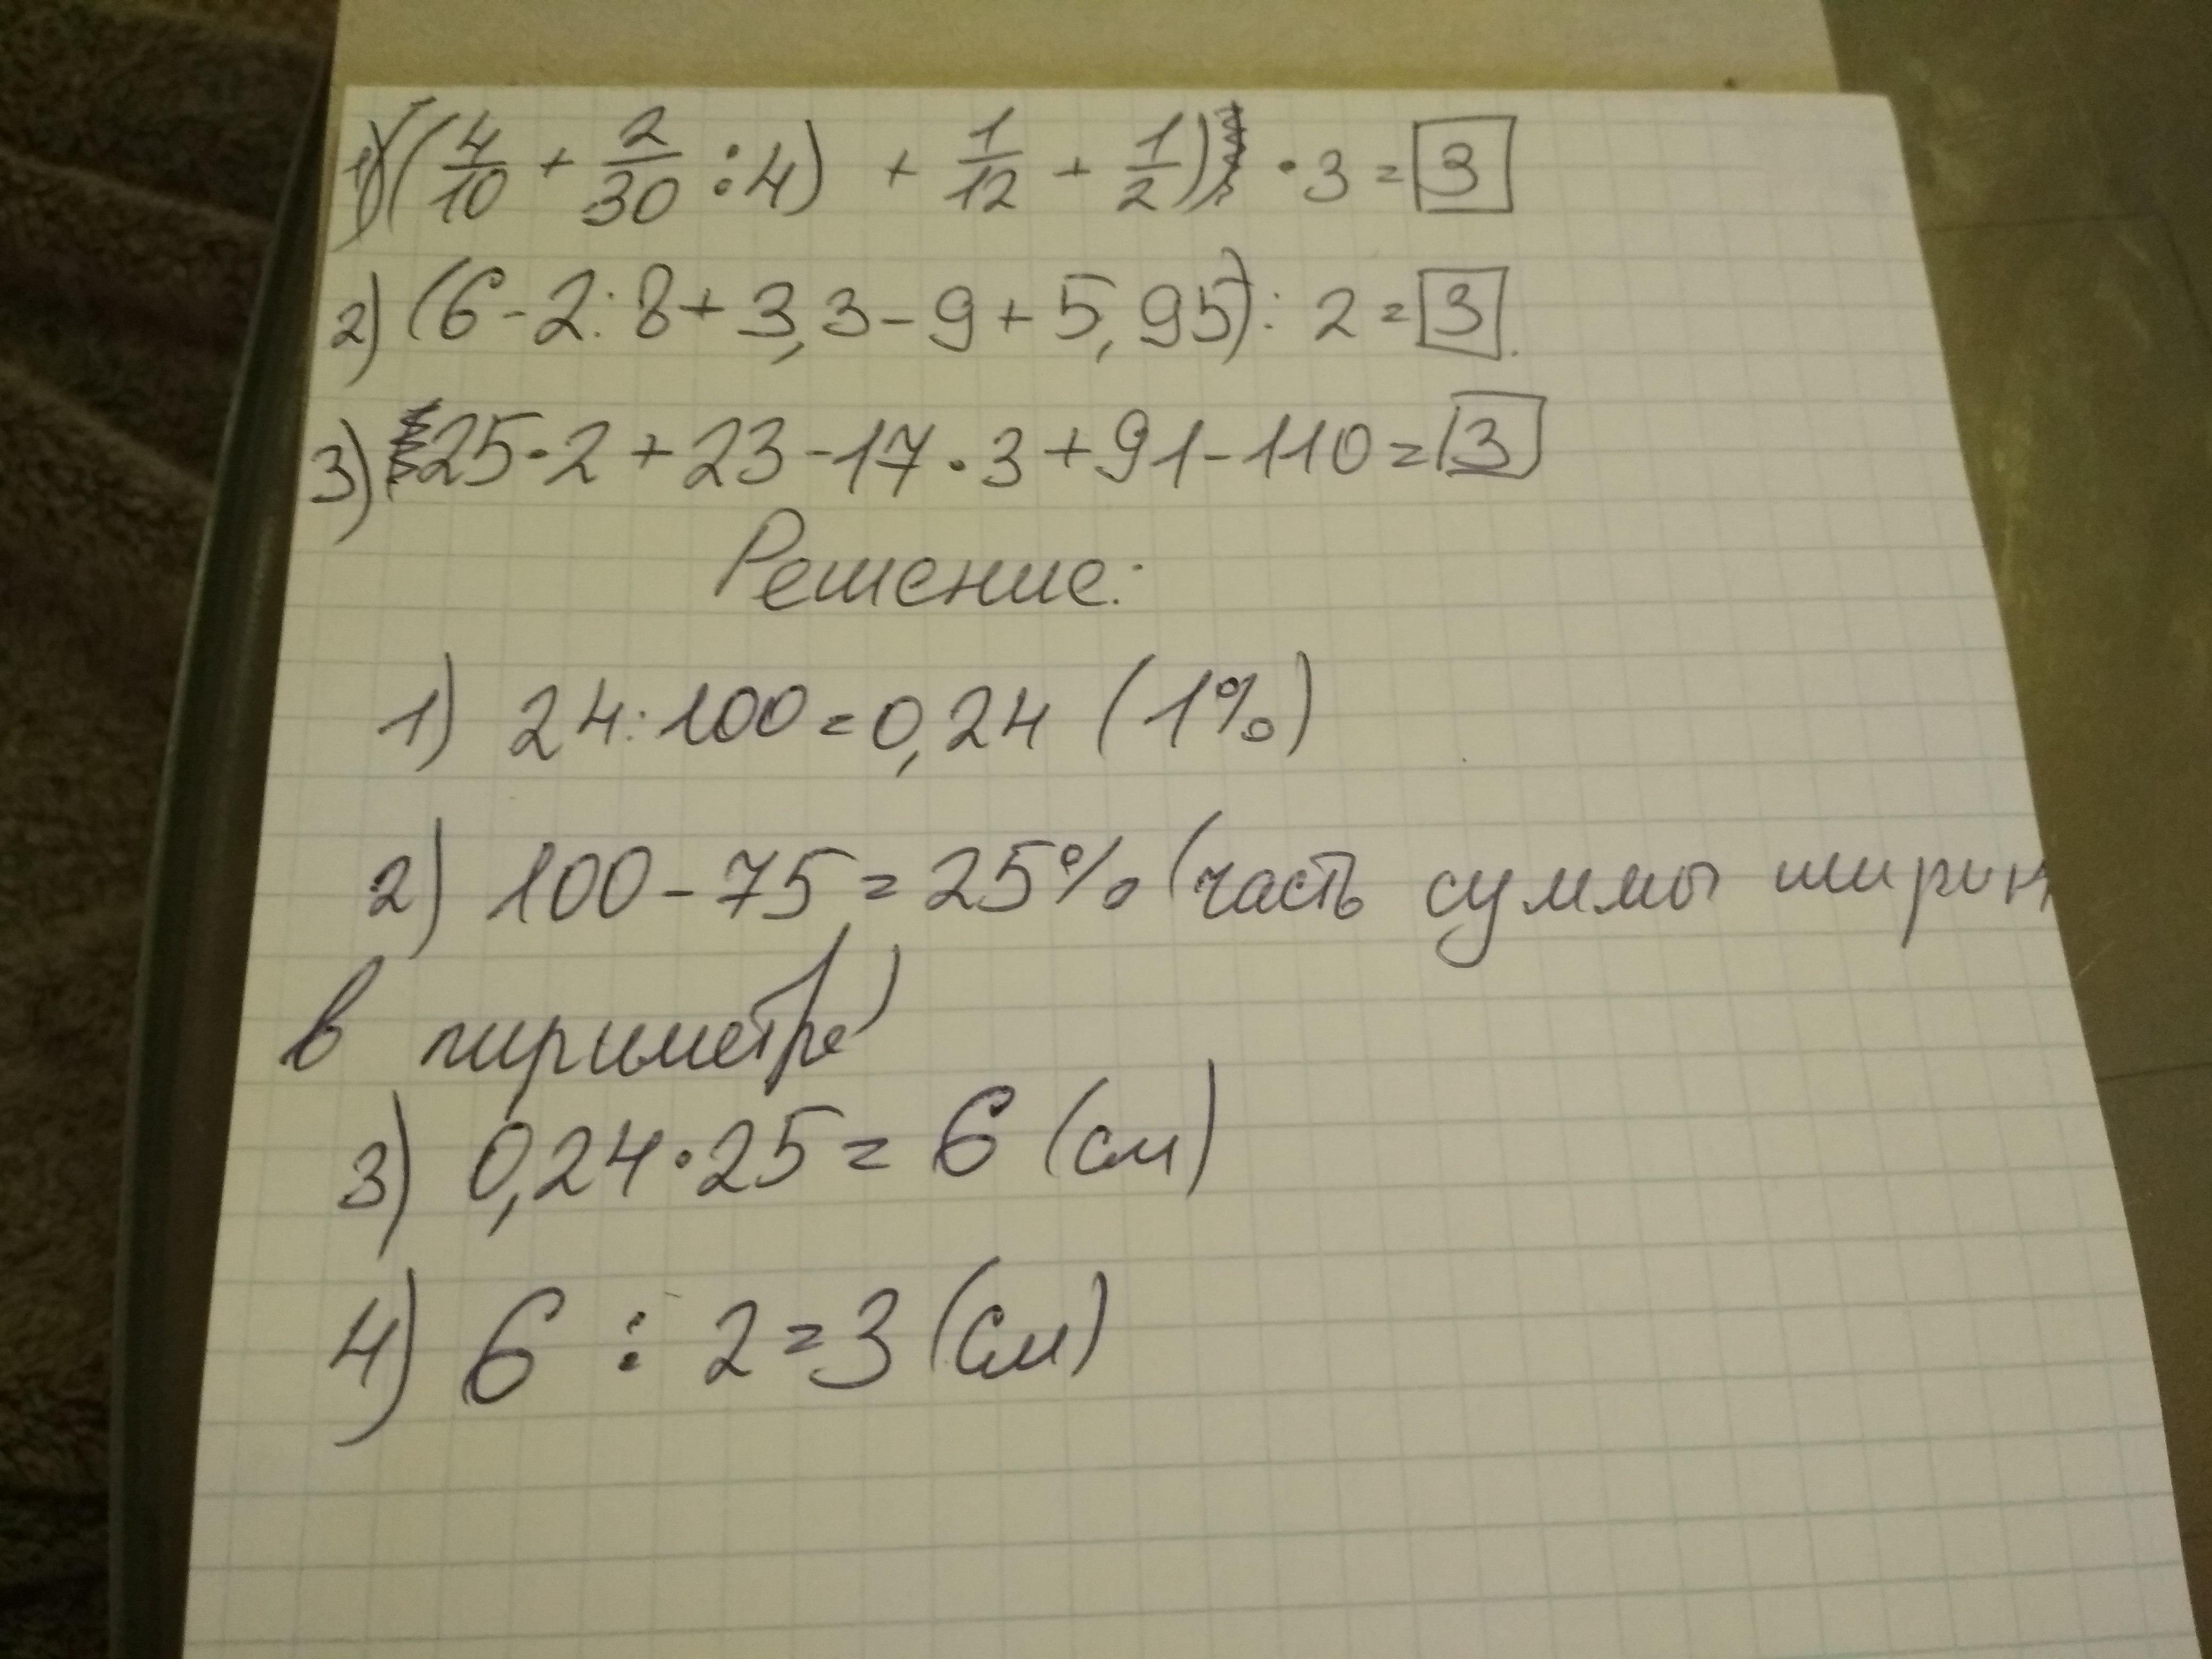 1) ((4/10 + 2/30 : 4) + 1/12 + 1/2) · 3 = 3
2) (6 - 2 : 8 + 3,3 - 9 + 5,95) : 2 = 3
3) 25 · 2 + 23 - 17 · 3 + 91 - 110 = 3
Решение:
1) 24 : 100 = 0,24 (1%)
2) 100 - 75 = 25% (часть суммы ширин
в пириметре)
3) 0,24 · 25 = 6 (см)
4) 6 : 2 = 3 (см)